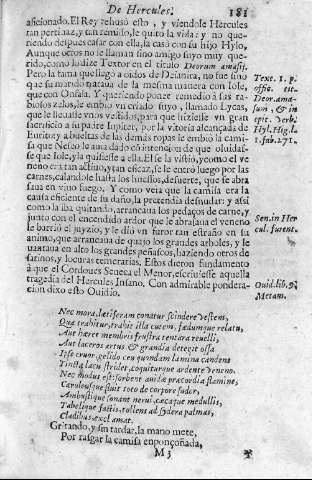 De Hercules. 181
aficionado. El Rey rehusó esto, y viendole Hercules
tan pertinaz, y tan remisso, le quitò la vida: y no que-
riendo despues casar con ella, la casò con su hijo Hylo,
Aunque otros no le llaman sino amigo suyo muy que-
rido, como lo dize Textor en el titulo Deorum amasij.
Pero la fama que llegò a oidos de Deianira, no fue sino
que su marido trataua de la misma manera con Iole,
que con Onfala. Y queriendo poner remedio a sus ra-
biosos zelos, le embiò vn criado suyo, llamado Lycas,
que le lleuasse vnos vestidos, para que hiziesse vn gran
sacrificio a su padre Iupiter, por la vitoria alcançada de
Eurito; y a bueltas de las demàs ropas le embiò la cami-
sa que Nesso le auia dado con intencion de que oluidas-
se que Iole, y la quisiesse a ella. El se la vistio, y como el ve
neno era tan actiuo, y tan eficaz, se le entrò luego por las
carnes, calandole hasta los huessos, de suerte, que se abra
saua en viuo fuego. Y como veia que la camisa era la
causa eficiente de su daño, la pretendia desnudar: y assi
como la iba quitando, arrancaua los pedaços de carne, y
junto con el encendido ardor que le abrasaua el veneno
le barriò el juyzio, y le diò vn furor tan estraño en su
animo, que arrancaua de quajo los grandes arboles, y le
uantaua en alto los grandes peñascos, haziendo otros de
satinos, y locuras temerarias. Estos dieron fundamento
à que el Cordoues Seneca el Menor, escriuiesse aquella
tragedia del Hercules Insano. Con admirable pondera-
cion dixo esto Ouidio.
Text. 1. p.
offic. tit.
Deor. ama-
sum, & in
epit. Verb.
Hyl. Hig. l.
1. fab. 271.
Sen. in Her
cul. furente.
Ouid. lib. 9.
Metam.
Nec mora, letiferam conatur scindere vestem,
Qua trahitur, trahit illa cutem, fœdumque relatu,
Aut hæret membris frustra tentata reuelli,
Aut laceros artus & grandia detegit ossa
Ipse cruor, gelido ceu quondam lamina candens
Tincta lacu stridet, coquiturque ardente veneno.
Nec modus est: sorbent auidæ præcordia flammæ,
Cæruleusque fluit toto de corpore sudor,
Ambustique sonant nerui, cæcaque medullis,
Tabe liquefactis, tollens ad sydera palmas,
Cladibus exclamat.
Gritando, y sin tardar, la mano mete,
Por rasgar la camisa enponçoñada,
M 3